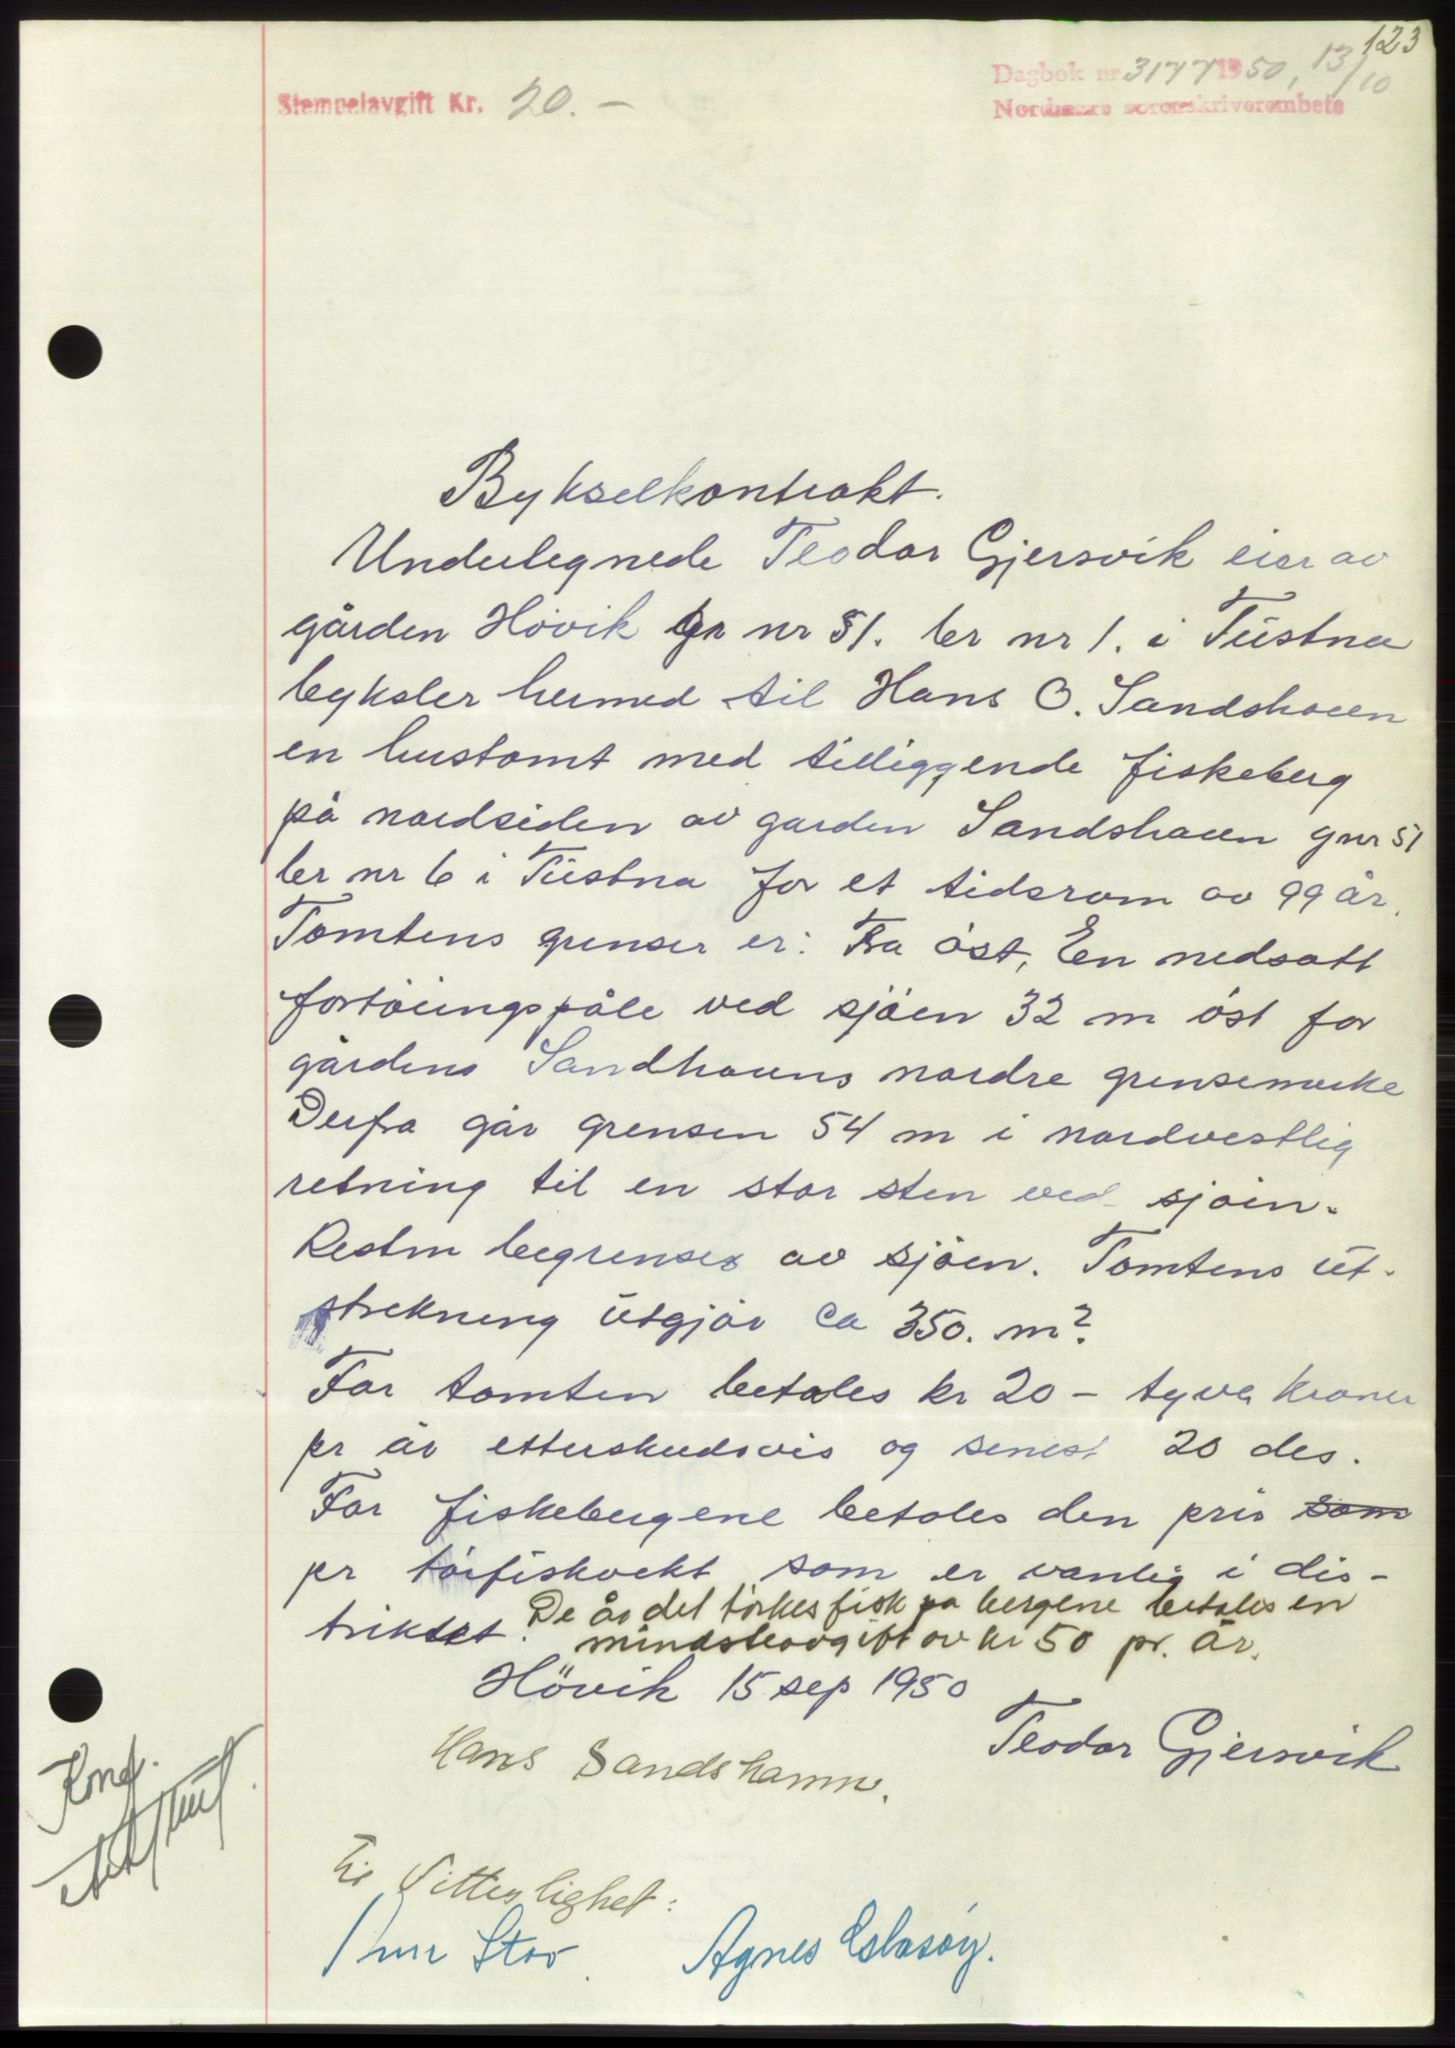 123
Dagbok nr. 3177 1950, 13/10
Stempelavgift Kr. 20.-
Nordmøre sorenskriverembete
Bykselkontrakt.
Undertegnede Teodor Gjersvik eier av
gården Hövik gr nr 51. br nr 1. i Tüstna
byksler hermed til Hans O. Sandshaun
en hustomt med tilliggende fiskeberg
på nordsiden av garden Sandshaun gnr 51
br nr 6 i Tüstna for et tidsrom av 99 år.
Tomtens grenser er: Fra öst, En nedsatt
fortöiingspåle ved sjöen 32 m öst for
gårdens Sandhauns nordre grensemerke
Derfra går grensen 54 m i nordvestlig
retning til en stor sten ved sjöen.
Resten begrenses av sjöen. Tomtens üt-
strekning ütgjör ca 350. m².
For tomten betales kr 20 - tyve kroner
pr år etterskudsvis og senest 20 des.
For fiskebergene betales den pris som
pr törfiskvekt som er vanlig i dis-
triktet. De år det törkes fisk på bergene betales en
mindsteavgift av kr 50 pr. år.
Hövik 15 sep 1950
Teodor Gjersvik
Hans Sandshamn.
Konf.
Til Vitterlighet:
Stor. Agnes Eslasöy.